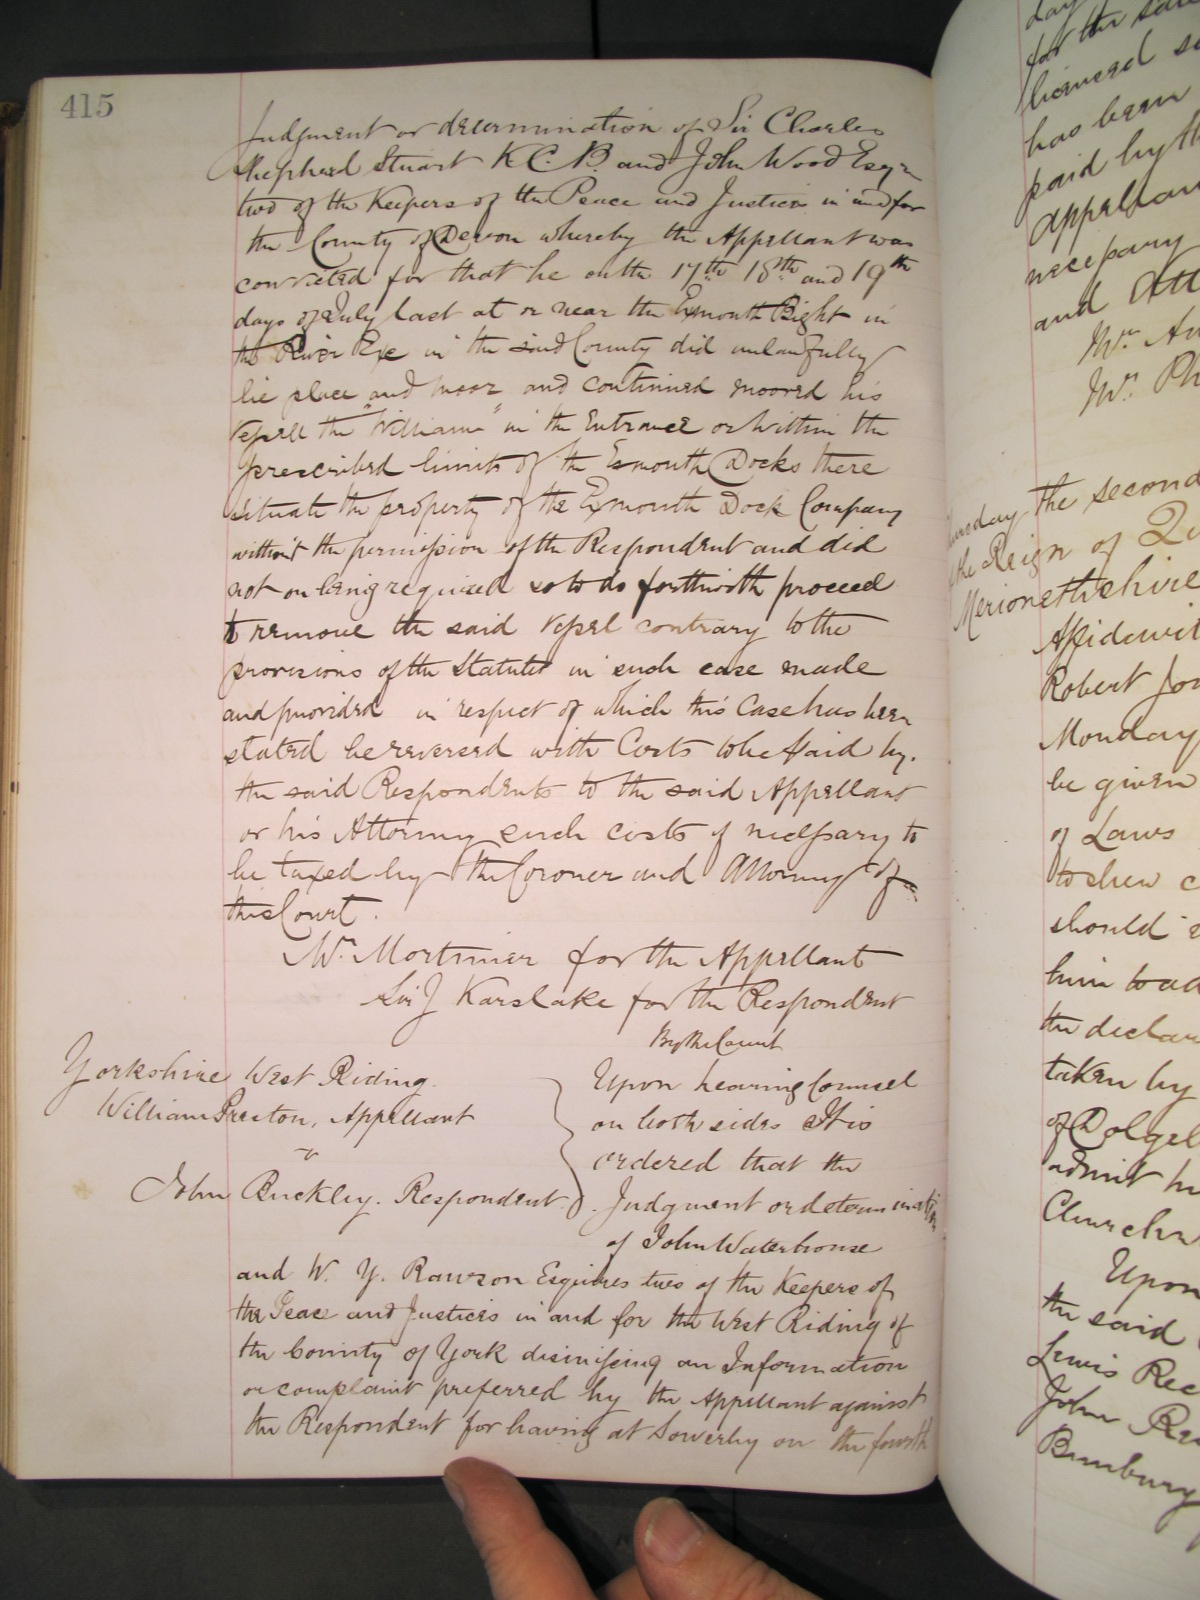 415
Judgment or determination of Sir Charles
Shepherd Stuart K.C.B. and John Wood Esqre
two of the Keepers of the Peace and Justices in and for
the County of Devon whereby the Appellant was
convicted for that he on the 17th 18th and 19th
days of July last at or near the Exmouth Bight in
the River Exe in the said County did unlawfully
lie place and moor and continued moored his
Vessell the "William" in the Entrance or within the
prescribed limits of the Exmouth Docks there
situate the property of the Exmouth Dock Company
without the permission of the Respondent and did
not on being required so to do forthwith proceed
to remove the said Vessel contrary to the
provisions of the Statutes in such case made
and provided in respect of which this Case has been
stated be reversed with Costs to be paid by
the said Respondents to the said Appellant
or his Attorney such costs if necessary to
be taxed by the Coroner and Attorney of
this Court.
Mr. Mortimer for the Appellant
Sir J Karslake for the Respondent
By the Court
Yorkshire West Riding.
William Preston, Appellant
v
John Buckley. Respondent.
Upon hearing Counsel
on both sides It is
ordered that the
Judgment or determination
of John Waterhouse
and W. Y. Rawson Esquires two of the Keepers of
the Peace and Justices in and for the West Riding of
the County of York dismissing an Information
or complaint preferred by the Appellant against
the Respondent for having at Sowerby on the fourth
day
for the said
licensed
has been
paid by th
Appellan
necessary
and Att
Mr.
Mr. Ph
the second
the Reign of
Merionethshire
Affidavit
Robert Jon
Monday
be given
of Laws
to shew c
should
him to ad
the declar
taken by
of Dolgel
admit h
Church
Upon
the said
Lewis
John
Bunbury